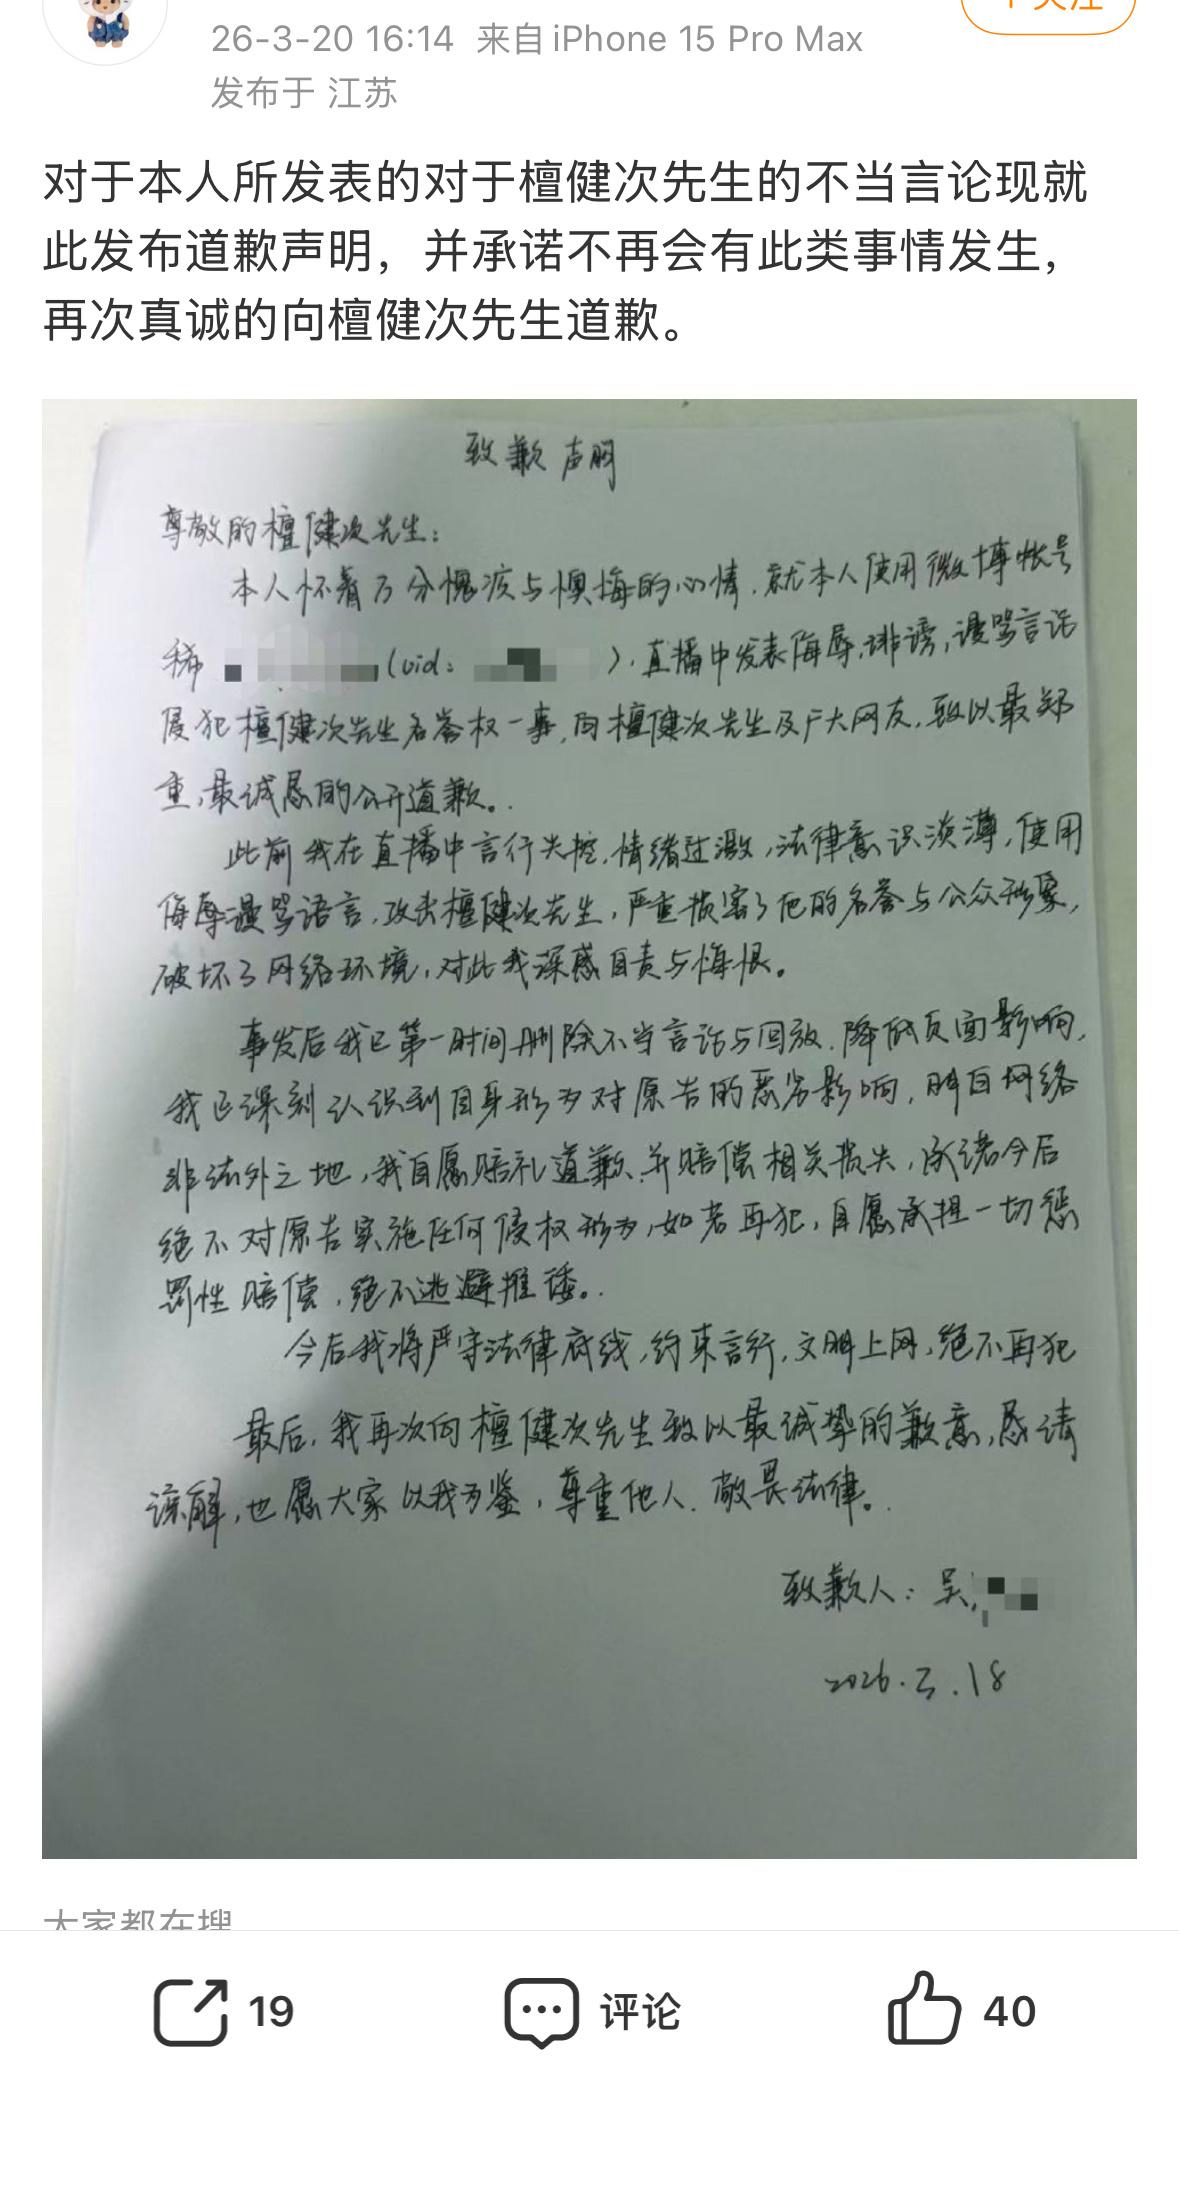 26-3-20 16:14 来自 iPhone 15 Pro Max
发布于 江苏
对于本人所发表的对于檀健次先生的不当言论现就
此发布道歉声明，并承诺不再会有此类事情发生，
再次真诚的向檀健次先生道歉。
致歉声明
尊敬的檀健次先生：
本人怀着万分愧疚与懊悔的心情，就本人使用微博帐号
稀 (uid: )，直播中发表侮辱，诽谤，谩骂言论
侵犯檀健次先生名誉权一事，向檀健次先生及广大网友，致以最郑
重，最诚恳的公开道歉。
此前我在直播中言行失控，情绪过激，法律意识淡薄，使用
侮辱谩骂语言，攻击檀健次先生，严重损害了他的名誉与公众形象，
破坏了网络环境，对此我深感自责与悔恨。
事发后我已第一时间删除不当言论与回放，降低负面影响，
我已深刻认识到自身形为对原告的恶劣影响，明白网络
非法外之地，我自愿赔礼道歉、并赔偿相关损失，承诺今后
绝不对原告实施任何侵权形为，如若再犯，自愿承担一切惩
罚性赔偿，绝不逃避推诿。
今后我将严守法律底线，约束言行，文明上网，绝不再犯
最后，我再次向檀健次先生致以最诚挚的歉意，恳请
谅解，也愿大家以我为鉴，尊重他人，敬畏法律。
致歉人：吴
2026.3.18
大家都在搜
19 评论 40